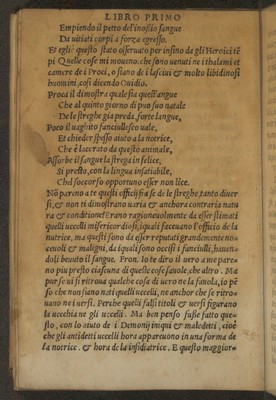 LIBRO PRIMO
Empiendo il petto del'inostio sangue
Da uitiati corpi a forza egresso.
Et egli questo stato osseruato per insino da gli Heroici tẽ
pi Quelle cose mi moueno che sono uenuti ne i thalami et
camere de i Proci, o siano de i lasciui & molto libidinosi
huomini, cosi dicendo Ouidio.
Proca il dimostra quale sia quest'angue
Che al quinto giorno di puo suo natale
De le streghe gia preda, forte langue,
Poco il uaghito fanciullesco uale,
Et chieder spesso aiuto a la notrice,
Che è lacerato da questo animale,
Assorbe il sangue la strega infelice,
Si presto, con la lingua insatiabile,
Chel soccorso opportuno esser non lice.
Nõ parono a te questi officij si a se de le streghe tanto diuer
si, & non ti dimostrano uaria & anchora contraria natu
ra & conditione Erano ragioneuolmente da esser stimati
quelli uccelli misericordiosi, i quali faceuano l'officio de la
nutrice, ma questi sono da esser reputati grandemente no=
ceuoli & maligni, da i quali sono occisi i fanciulli, hauen
doli beuuto il sangue. Fron. Io te diro il uero a me pare=
no piu presto ciascuna di quelle cose fauole, che altro. Ma
pur se ui si ritroua qualche cosa di uero ne la fauola, io pẽ
so che non siano nati quelli uccelli, ne anchor che se ritro=
uano ne i uersi. Perche quelli falsi titoli & uersi figurano
la uecchia ne gli uccelli. Ma ben penso fusse fatto que=
sto, con lo aiuto de i Demonij iniqui & maledetti, cioè
che gli antidetti uccelli hora appareuono in una forma de
la notrice, & hora de la insidiatrice. E questo maggior=